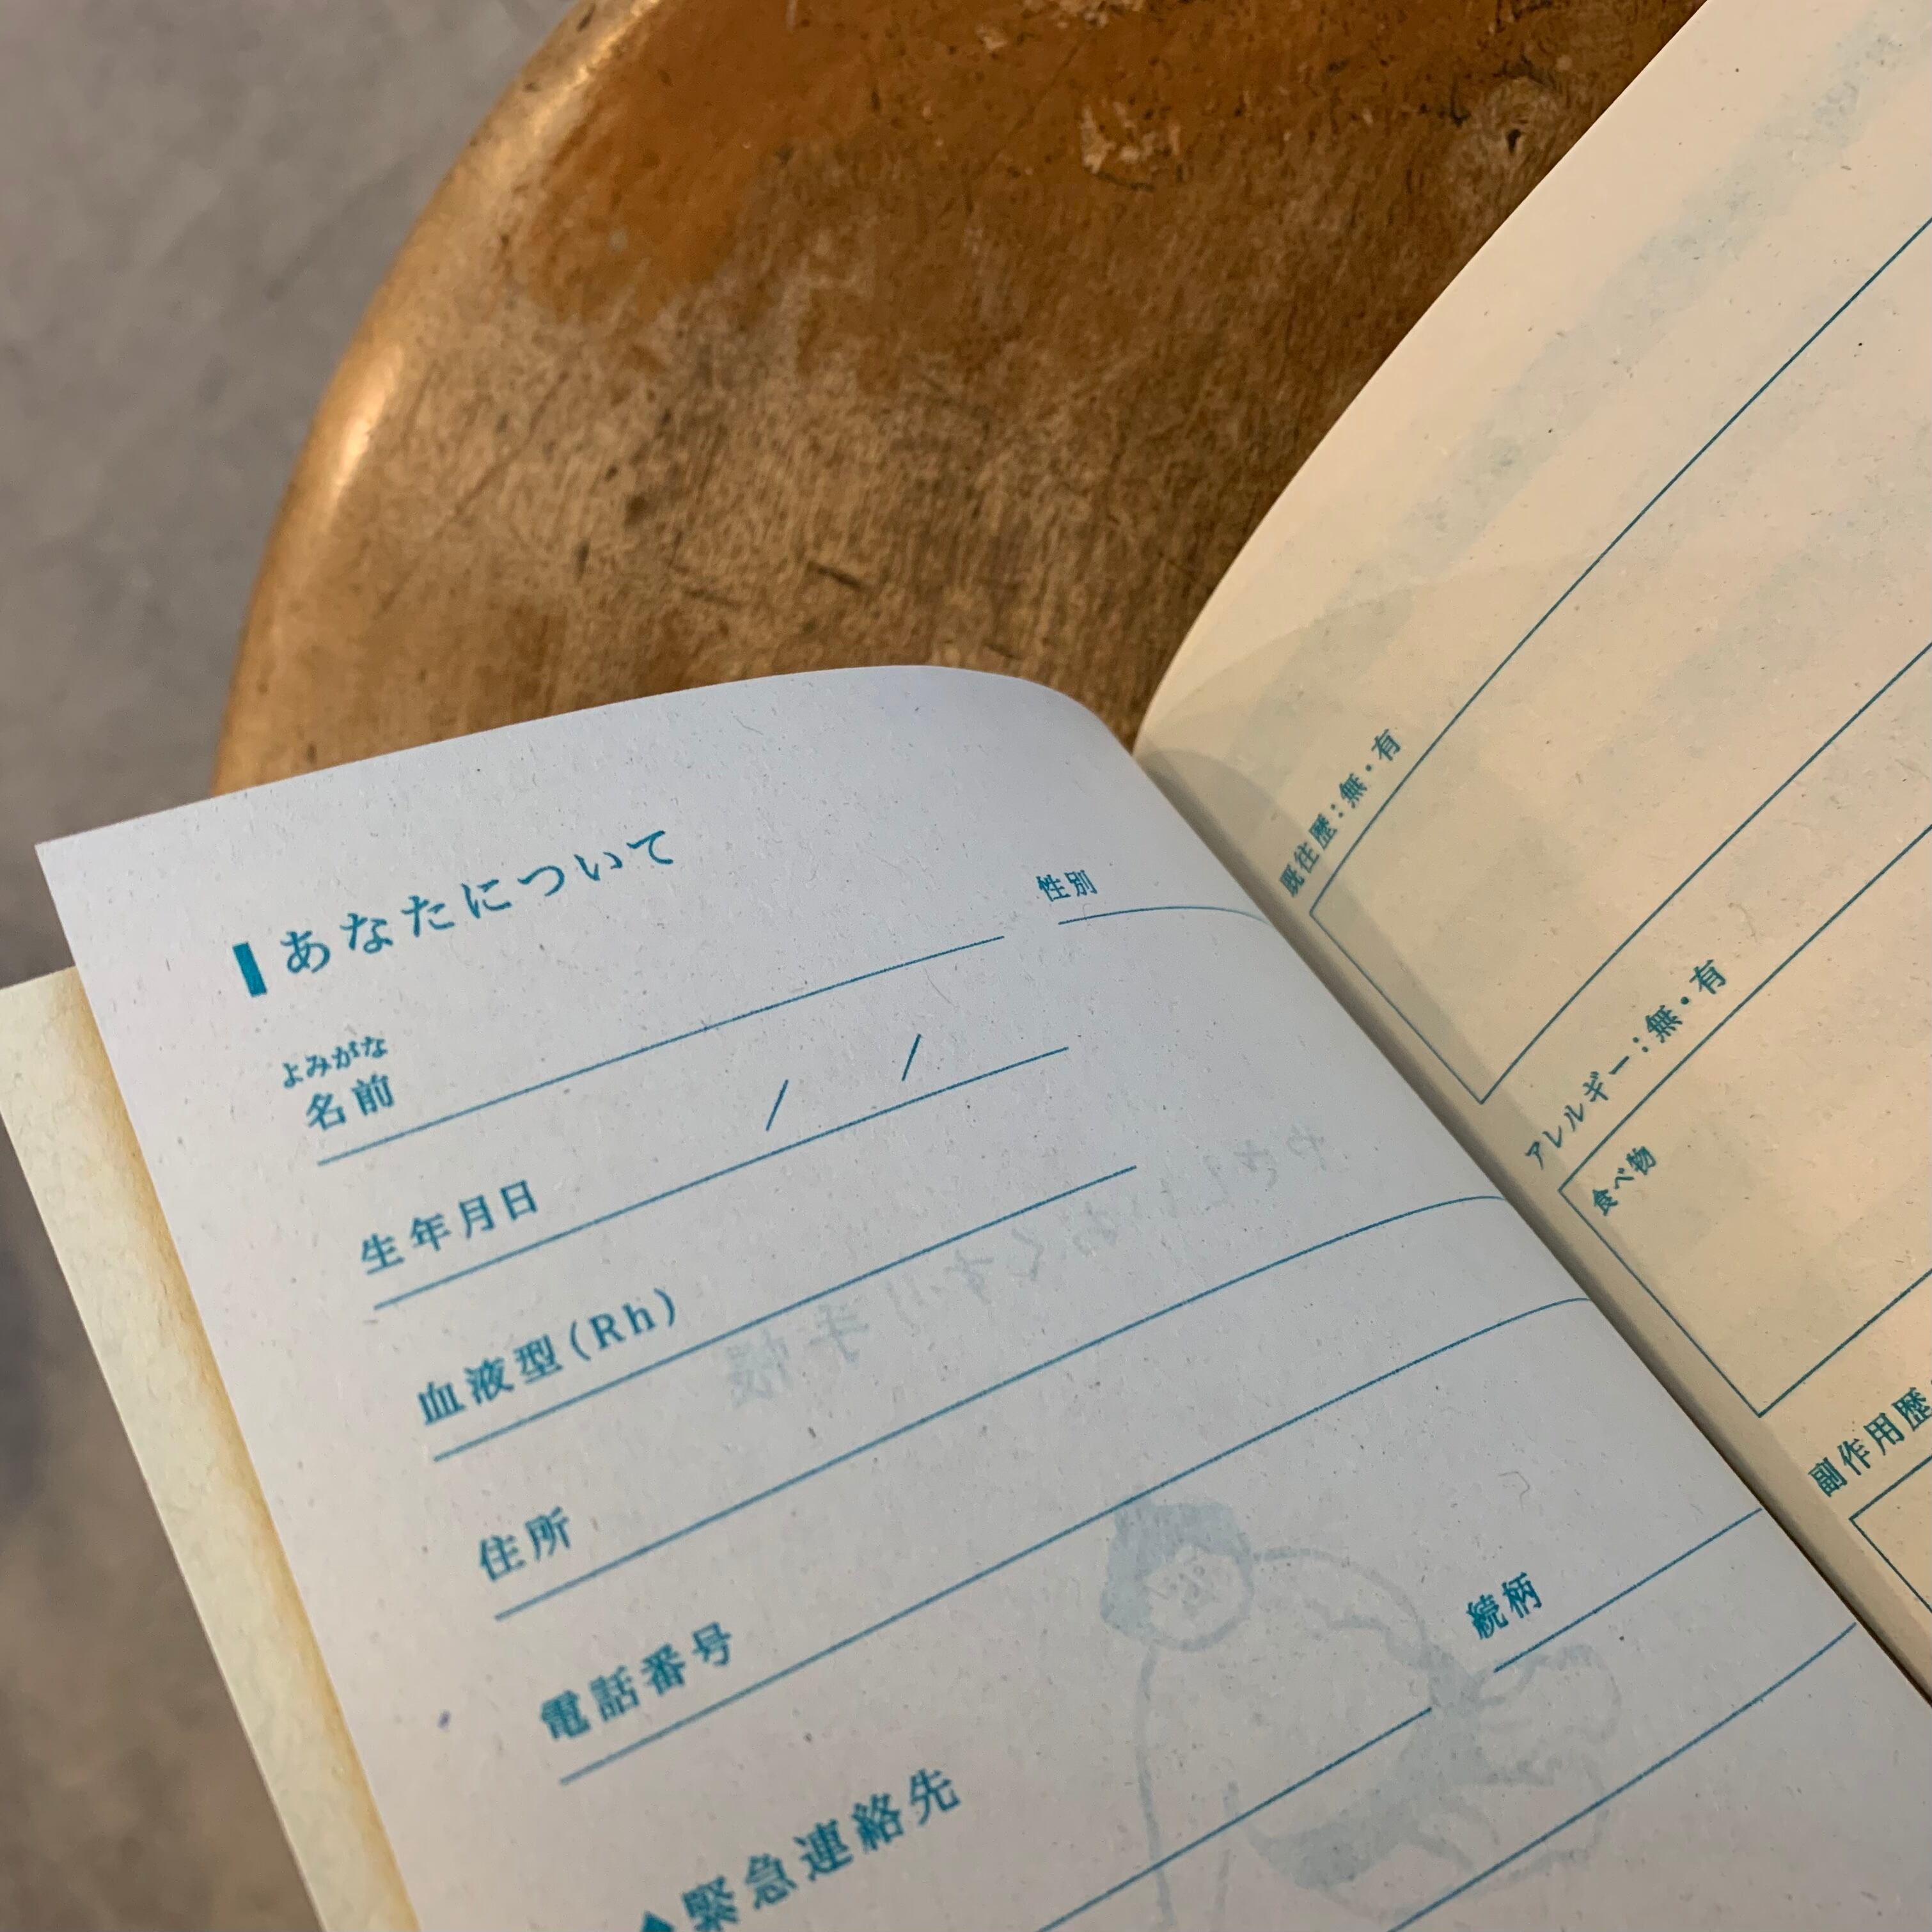 あなたについて
よみがな
名前
性別
／　／
生年月日
血液型(Rh)
住所
電話番号
◆緊急連絡先
続柄
既往歴：無・有
アレルギー：無・有
食べ物
副作用歴
やさしいおくすり手帳